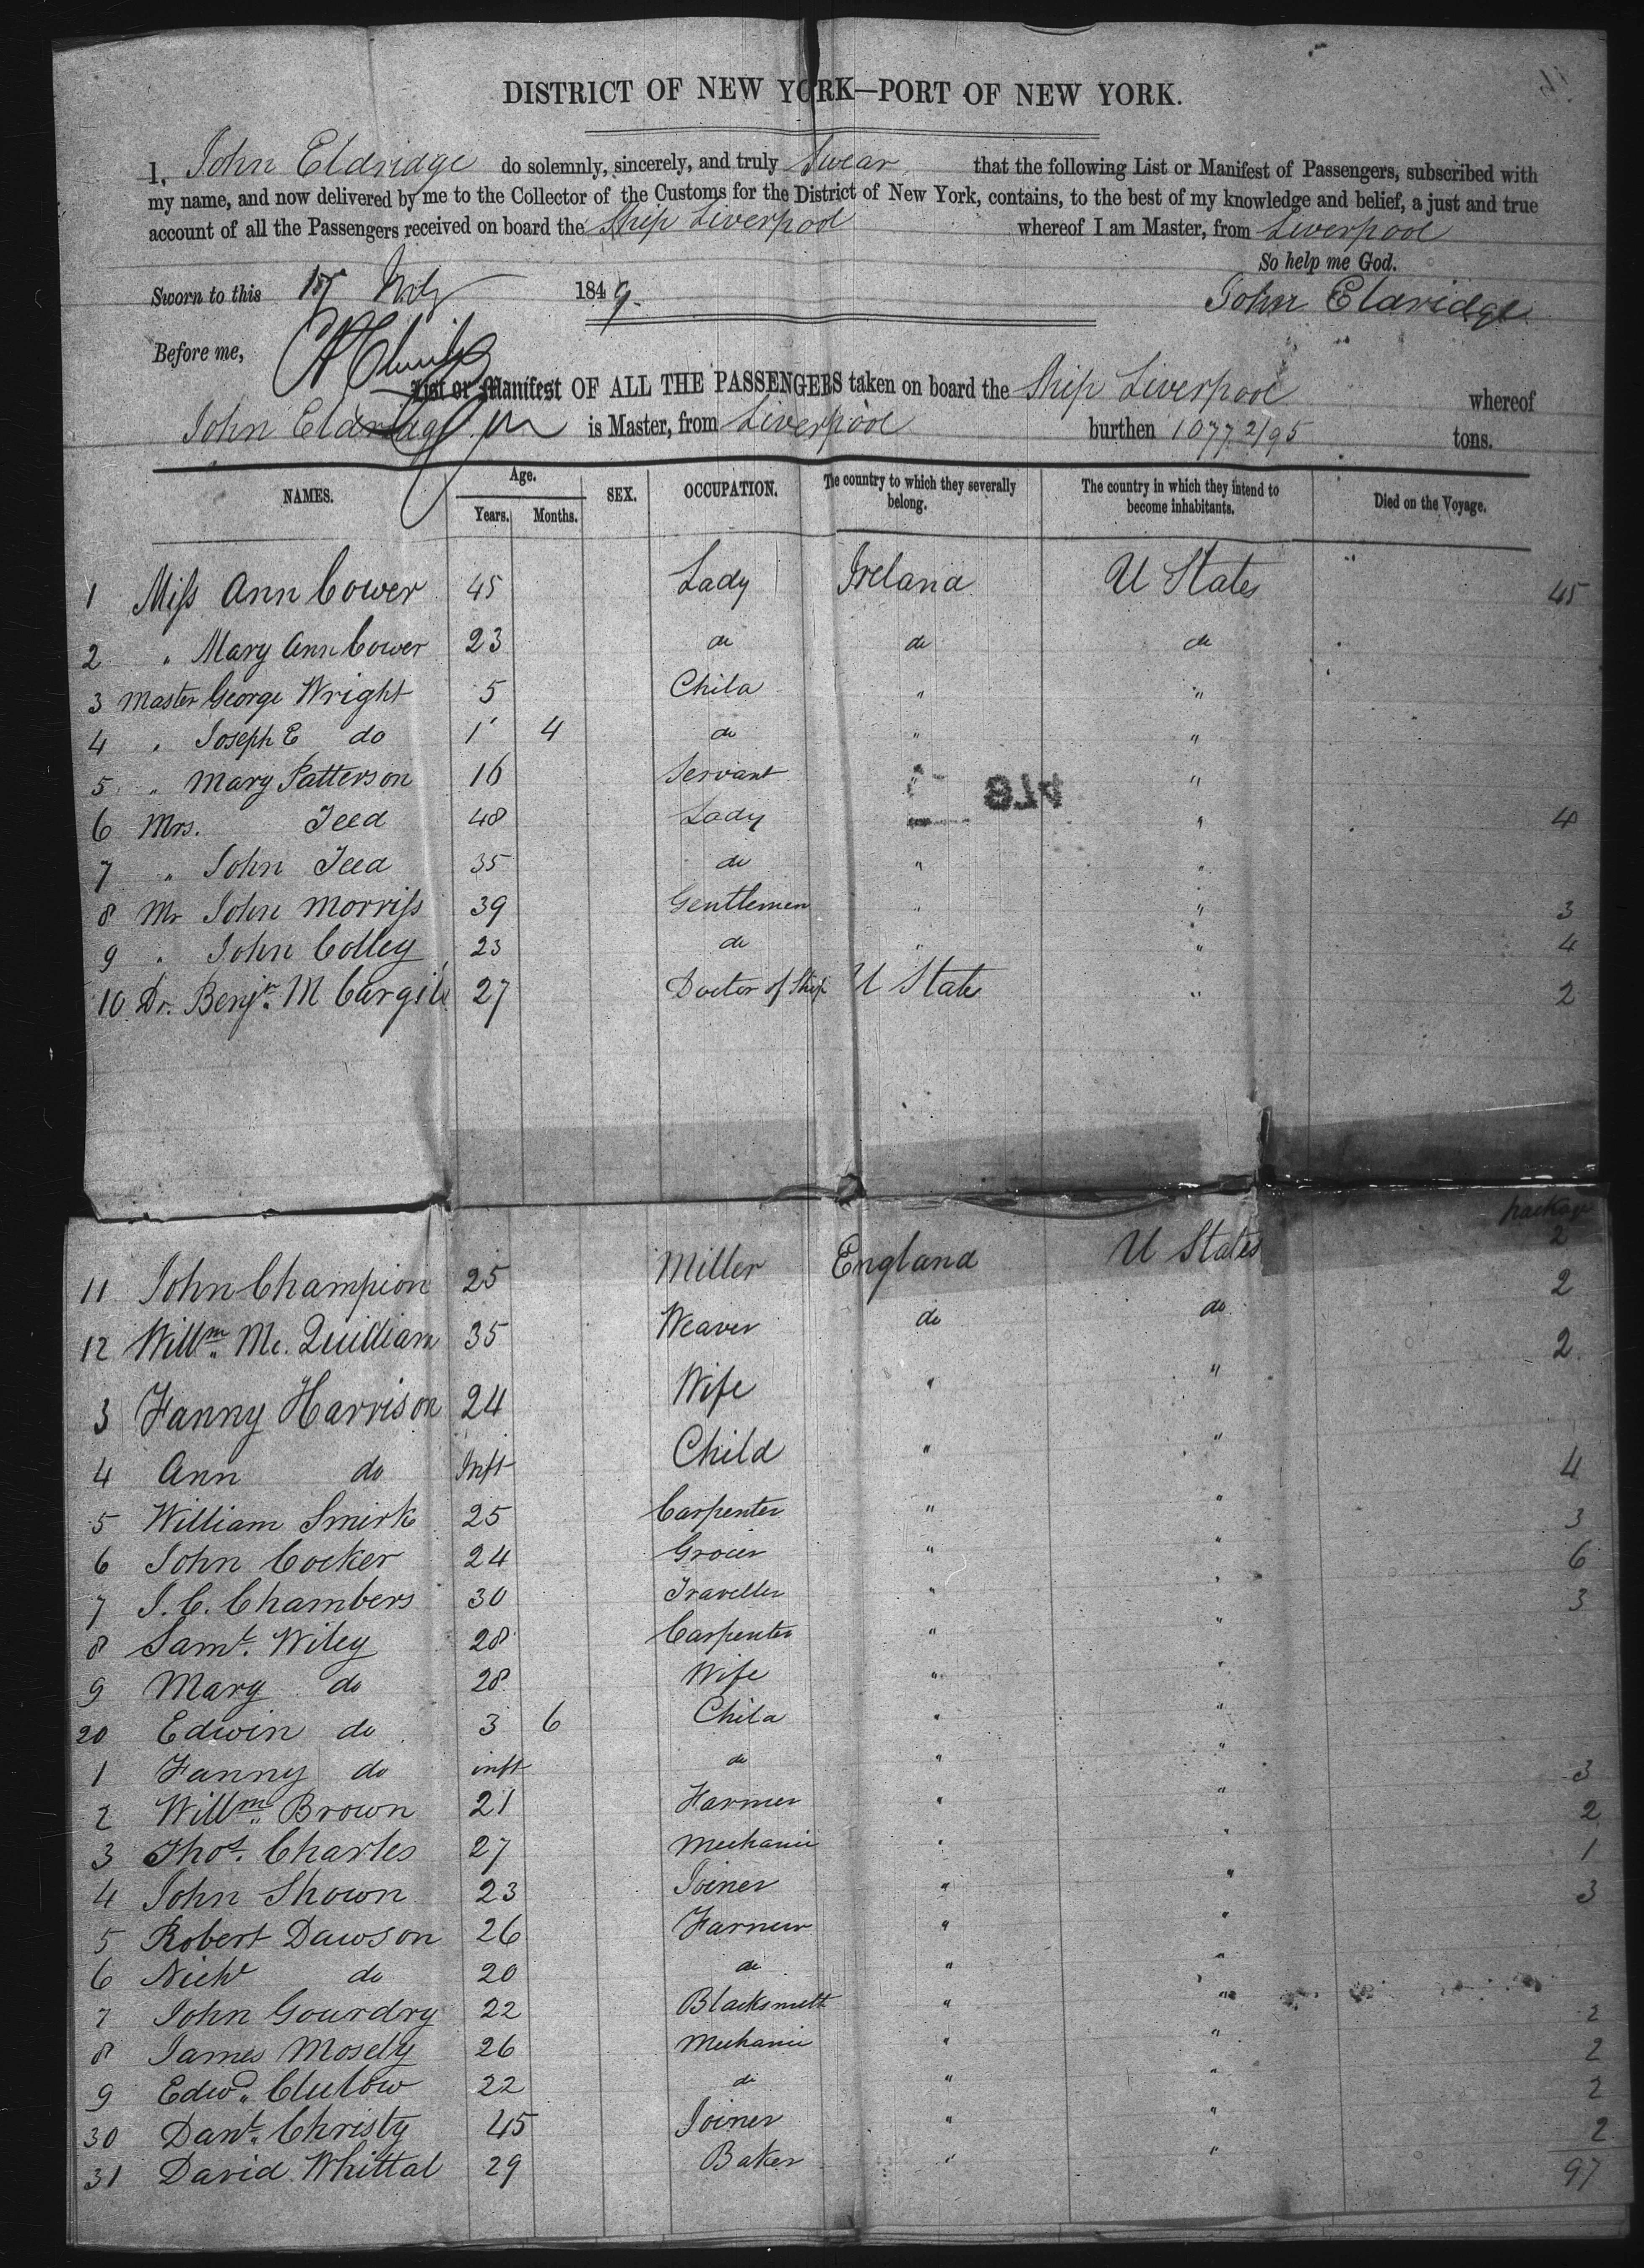 DISTRICT OF NEW YORK—PORT OF NEW YORK.
I, John Eldridge do solemnly, sincerely, and truly Swear that the following List or Manifest of Passengers, subscribed with
my name, and now delivered by me to the Collector of the Customs for the District of New York, contains, to the best of my knowledge and belief, a just and true
account of all the Passengers received on board the Ship Liverpool whereof I am Master, from Liverpool
So help me God.
Sworn to this 1849. John Eldridge
Before me,
List or Manifest OF ALL THE PASSENGERS taken on board the Ship Liverpool whereof
John Eldridge is Master, from Liverpool burthen 1077 2/95 tons.
NAMES. Age. Years. Months. SEX. OCCUPATION. The country to which they severally belong. The country in which they intend to become inhabitants. Died on the Voyage.
1 Miss Ann Cower 45 Lady Ireland U States 45
2 " Mary Ann Cower 23 do do do
3 Master George Wright 5 Child " "
4 " Joseph E do 1 4 do " "
5 " Mary Patterson 16 Servant " "
874
6 Mrs. Teed 48 Lady " 4
7 " John Teed 35 do " "
8 Mr John Morriss 39 Gentlemen " " 3
9 " John Colley 23 do " " 4
10 Dr. Benjn. M Cargill 27 Doctor of Ship U State " 2
2
11 John Champion 25 Miller England U States 2
12 Willm. Mc. Quilliam 35 Weaver do do 2
3 Fanny Harrison 24 Wife " "
4 Ann do Inft Child " " 4
5 William Smirk 25 Carpenter " " 3
6 John Cocker 24 Grocer " " 6
7 J. C. Chambers 30 Traveller " " 3
8 Saml. Wiley 28 Carpenter " "
9 Mary do 28 Wife " "
20 Edwin do 3 6 Child " "
1 Fanny do inft do " " 3
2 Willm. Brown 21 Farmer " " 2
3 Thos. Charles 27 Mechanic " " 1
4 John Shown 23 Joiner " " 3
5 Robert Dawson 26 Farmer " "
6 Nichs do 20 do " "
7 John Gourdry 22 Blacksmith " " 2
8 James Mosely 26 Mechanic " " 2
9 Edwd. Clulow 22 do " " 2
30 Danl. Christy 45 Joiner " " 2
31 David Whittal 29 Baker " " 97